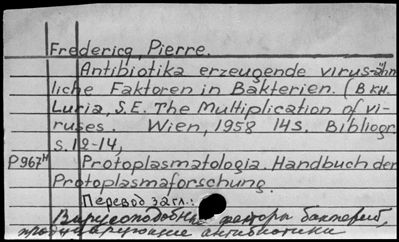 Fredericq, Pierre.
Antibiotika erzeugende virus-ähn
liche Faktoren in Bakterien. (В кн.
Luria, S.E. The Multiplication of vi-
ruses. Wien, 1958 14S. Bibliogr
S.12-14,
P967н Protoplasmatologia. Handbuch der
Protoplasmaforschung.
Перевод загл.:
Вирусоподобные факторы бактерий,
продуцирующие антибиотики